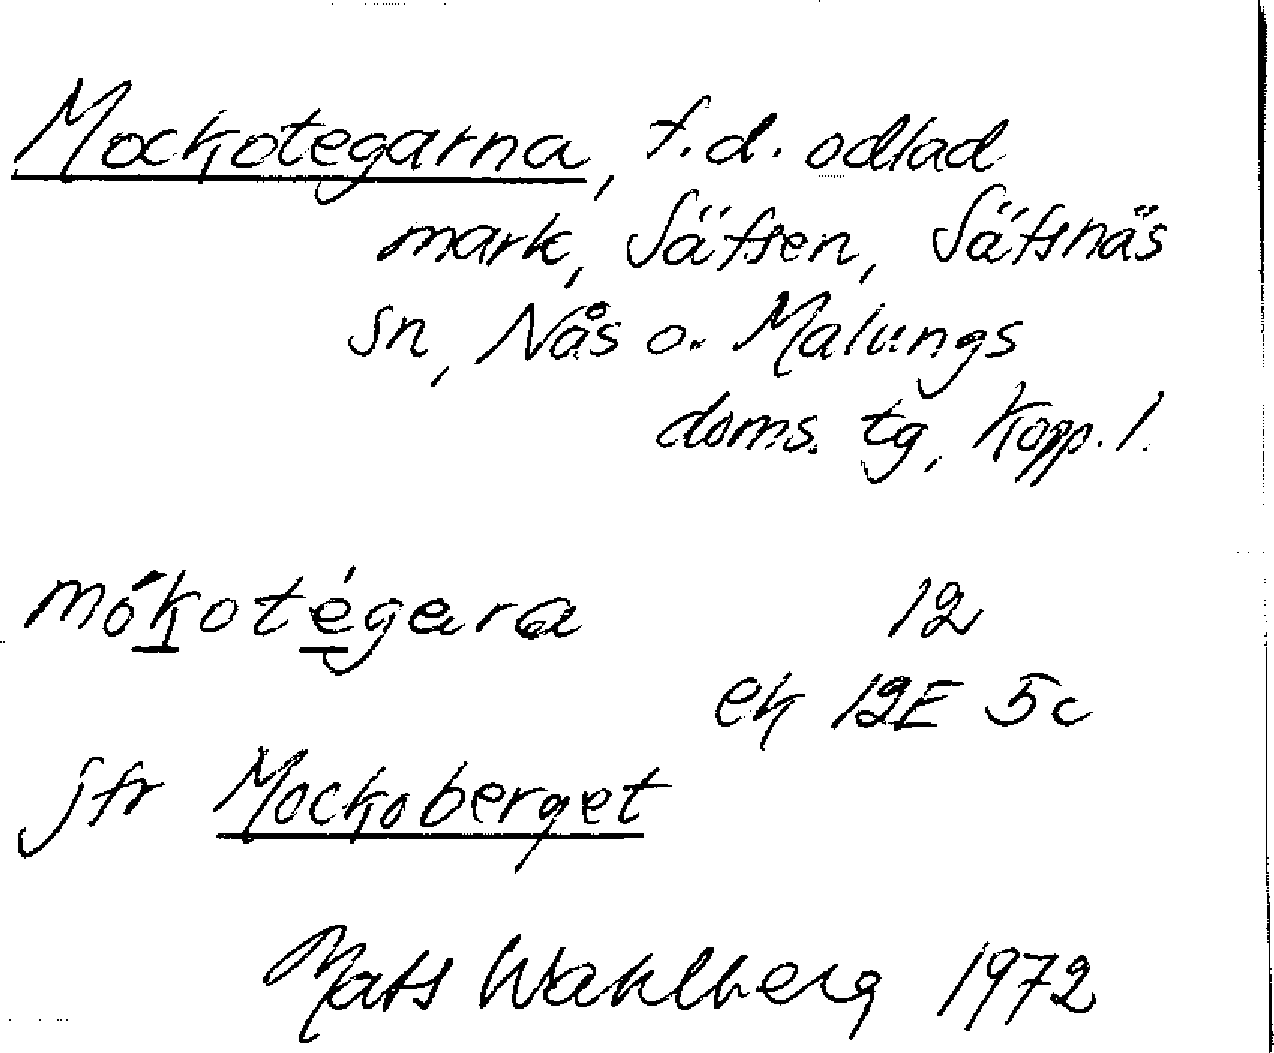 Mockotegarna, f.d. odlad
mark, Säfsen, Säfsnäs
sn, Nås o. Malungs
doms. tg, Kopp. l.
mókotégara 12
ek 12E 5c
jfr Mockoberget
Mats Wahlberg 1972